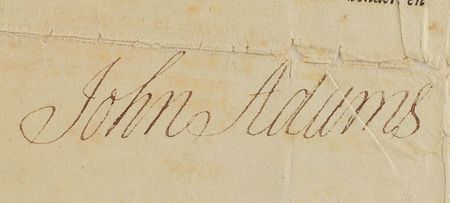 John Adams